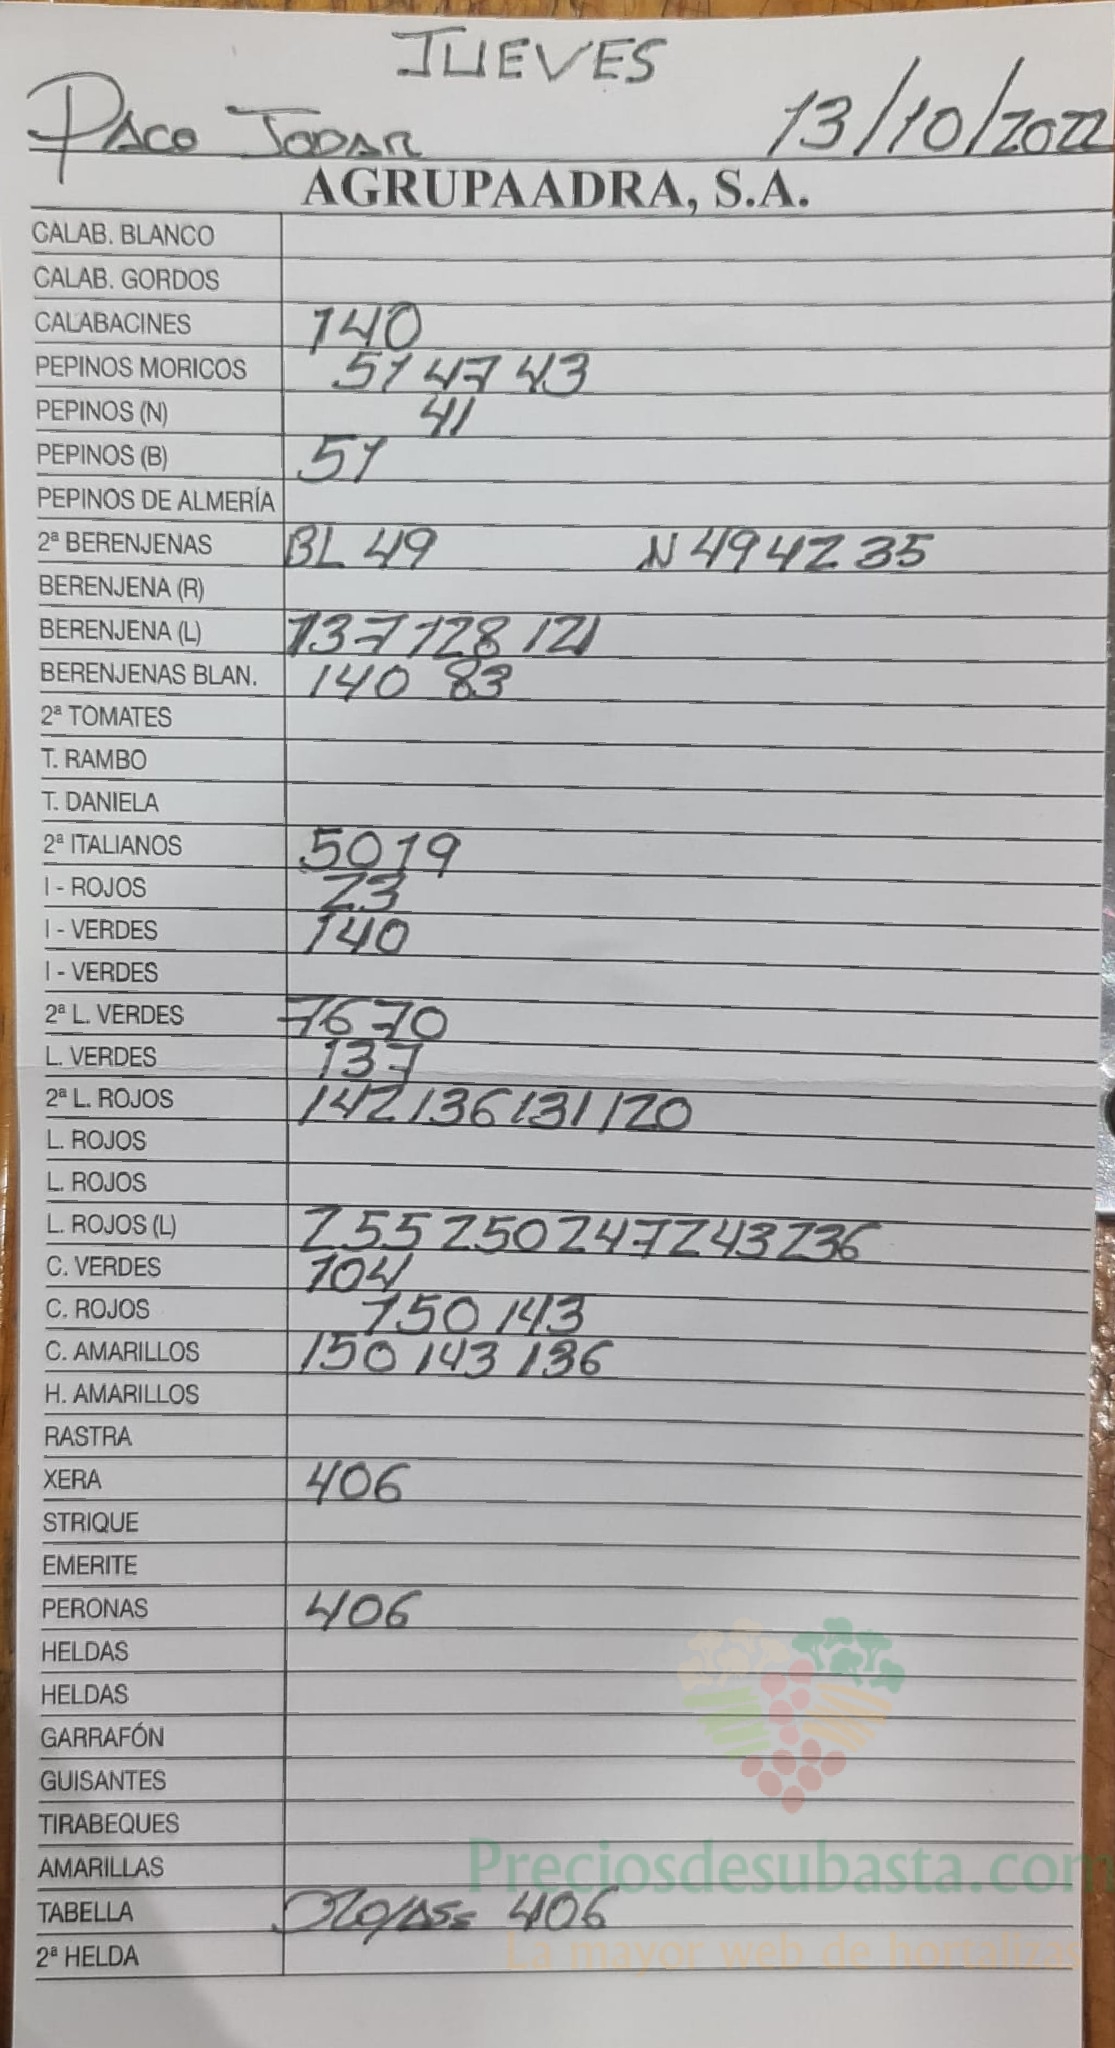 JUEVES
PACO JODAR 13/10/2022
AGRUPAADRA, S.A.
CALAB. BLANCO
CALAB. GORDOS
CALABACINES 140
PEPINOS MORICOS 51 47 43
PEPINOS (N) 41
PEPINOS (B) 51
PEPINOS DE ALMERÍA
2ª BERENJENAS BL 49 N 49 42 35
BERENJENA (R)
BERENJENA (L) 137 128 121
BERENJENAS BLAN. 140 83
2ª TOMATES
T. RAMBO
T. DANIELA
2ª ITALIANOS 50 19
I - ROJOS 23
I - VERDES 140
I - VERDES
2ª L. VERDES 76 70
L. VERDES 137
2ª L. ROJOS 142 136 131 120
L. ROJOS
L. ROJOS
L. ROJOS (L) 255 250 247 243 236
C. VERDES 104
C. ROJOS 150 143
C. AMARILLOS 150 143 136
H. AMARILLOS
RASTRA
XERA 406
STRIQUE
EMERITE
PERONAS 406
HELDAS
HELDAS
GARRAFÓN
GUISANTES
TIRABEQUES
AMARILLAS
Preciosdesubasta.com
TABELLA 406
La mayor web de hortalizas
2ª HELDA